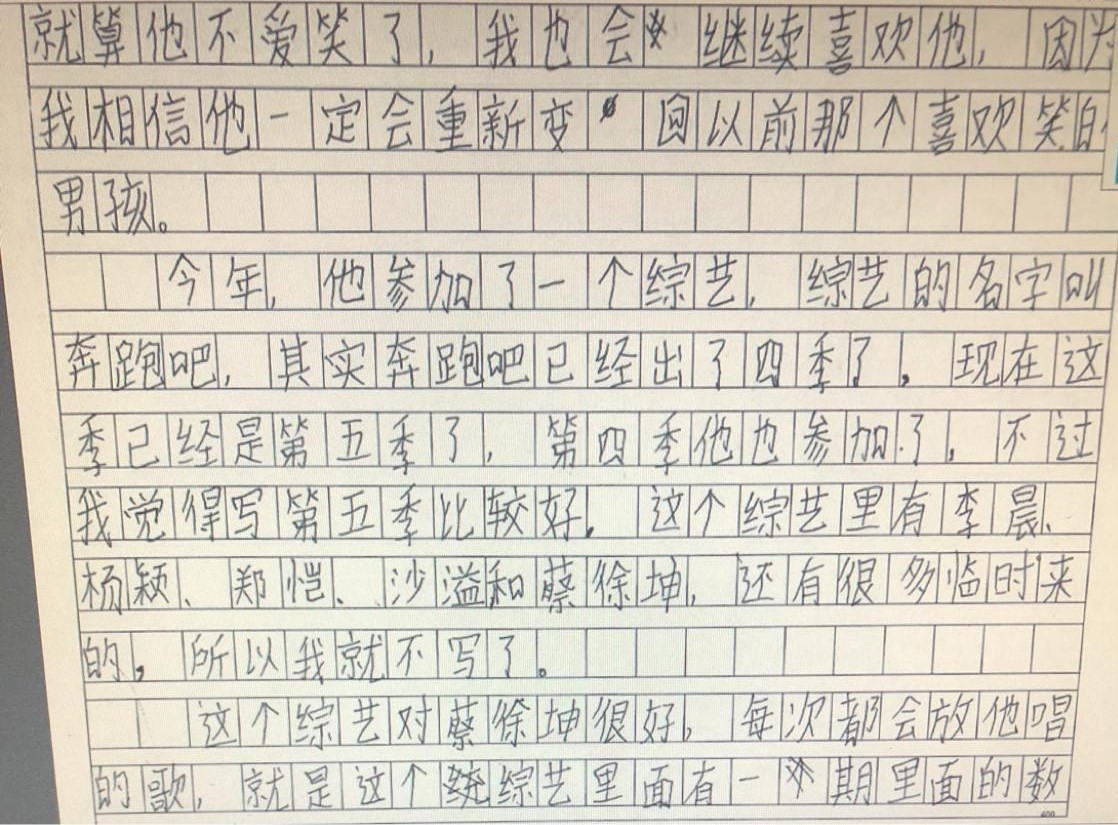 就算他不爱笑了，我也会继续喜欢他，因为
我相信他一定会重新变回以前那个喜欢笑的
男孩。
今年，他参加了一个综艺，综艺的名字叫
奔跑吧，其实奔跑吧已经出了四季了，现在这
季已经是第五季了，第四季他也参加了，不过
我觉得写第五季比较好，这个综艺里有李晨、
杨颖、郑恺、沙溢和蔡徐坤，还有很多临时来
的，所以我就不写了。
这个综艺对蔡徐坤很好，每次都会放他唱
的歌，就是这个综艺里面有一期里面的数